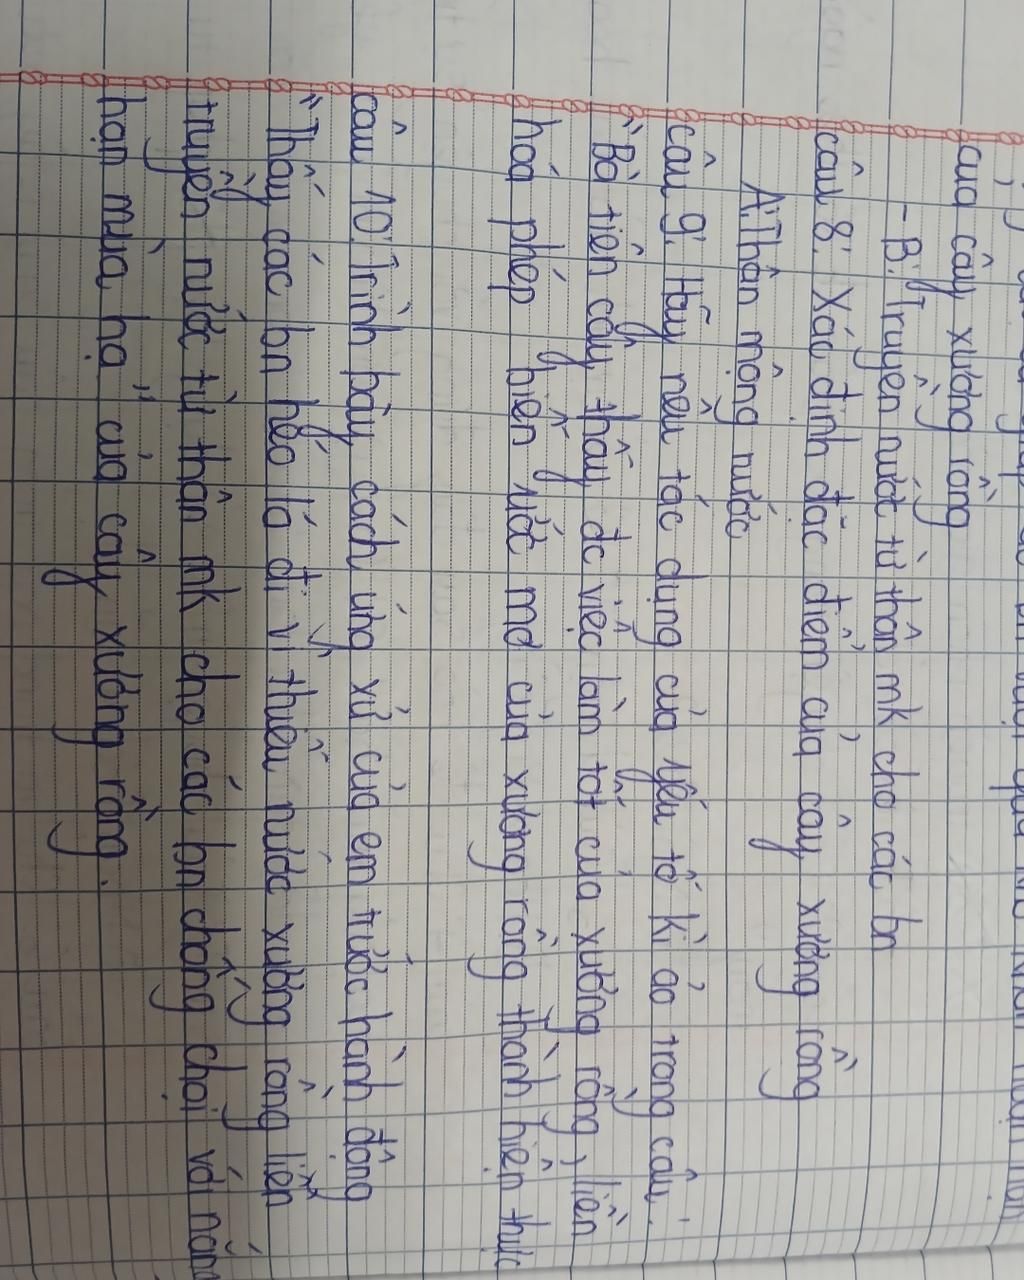 của cây xương rồng
- B. Truyền nước từ thân mk cho các bn
câu 8: Xác định đặc điểm của cây xương rồng
A. Thân mộng nước
câu 9: Hãy nêu tác dụng của yếu tố kì ảo trong câu:
"Bà tiên cây thấy đc việc làm tốt của xương rồng, liền
hoá phép biến ước mơ của xương rồng thành hiện thực
câu 10: Trình bày cách ứng xử của em trước hành động
"Thấy các bn héo lá đi vì thiếu nước xương rồng liền
truyền nước từ thân mk cho các bn chống chọi với nắng
hạn mùa hạ" của cây xương rồng.